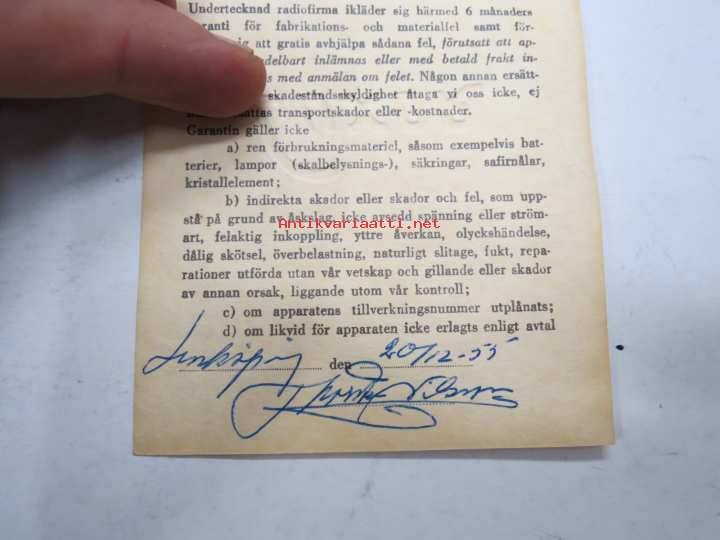 Undertecknad radiofirma ikläder sig härmed 6 månaders
garanti för fabrikations- och materialfel samt för-
sig att gratis avhjälpa sådana fel, förutsatt att ap-
delbart inlämnas eller med betald frakt in-
s med anmälan om felet. Någon annan ersätt-
skadeståndsskyldighet åtaga vi oss icke, ej
ättas transportskador eller -kostnader.
Garantin gäller icke
a) ren förbrukningsmateriel, såsom exempelvis bat-
terier, lampor (skalbelysnings-), säkringar, safirnålar,
kristallelement;
b) indirekta skador eller skador och fel, som upp-
stå på grund av åskslag, icke avsedd spänning eller ström-
Antikvariaatti.net
art, felaktig inkoppling, yttre åverkan, olyckshändelse,
dålig skötsel, överbelastning, naturligt slitage, fukt, repa-
rationer utförda utan vår vetskap och gillande eller skador
av annan orsak, liggande utom vår kontroll;
c) om apparatens tillverkningsnummer utplånats;
d) om likvid för apparaten icke erlagts enligt avtal
Linköping den 20/12-55